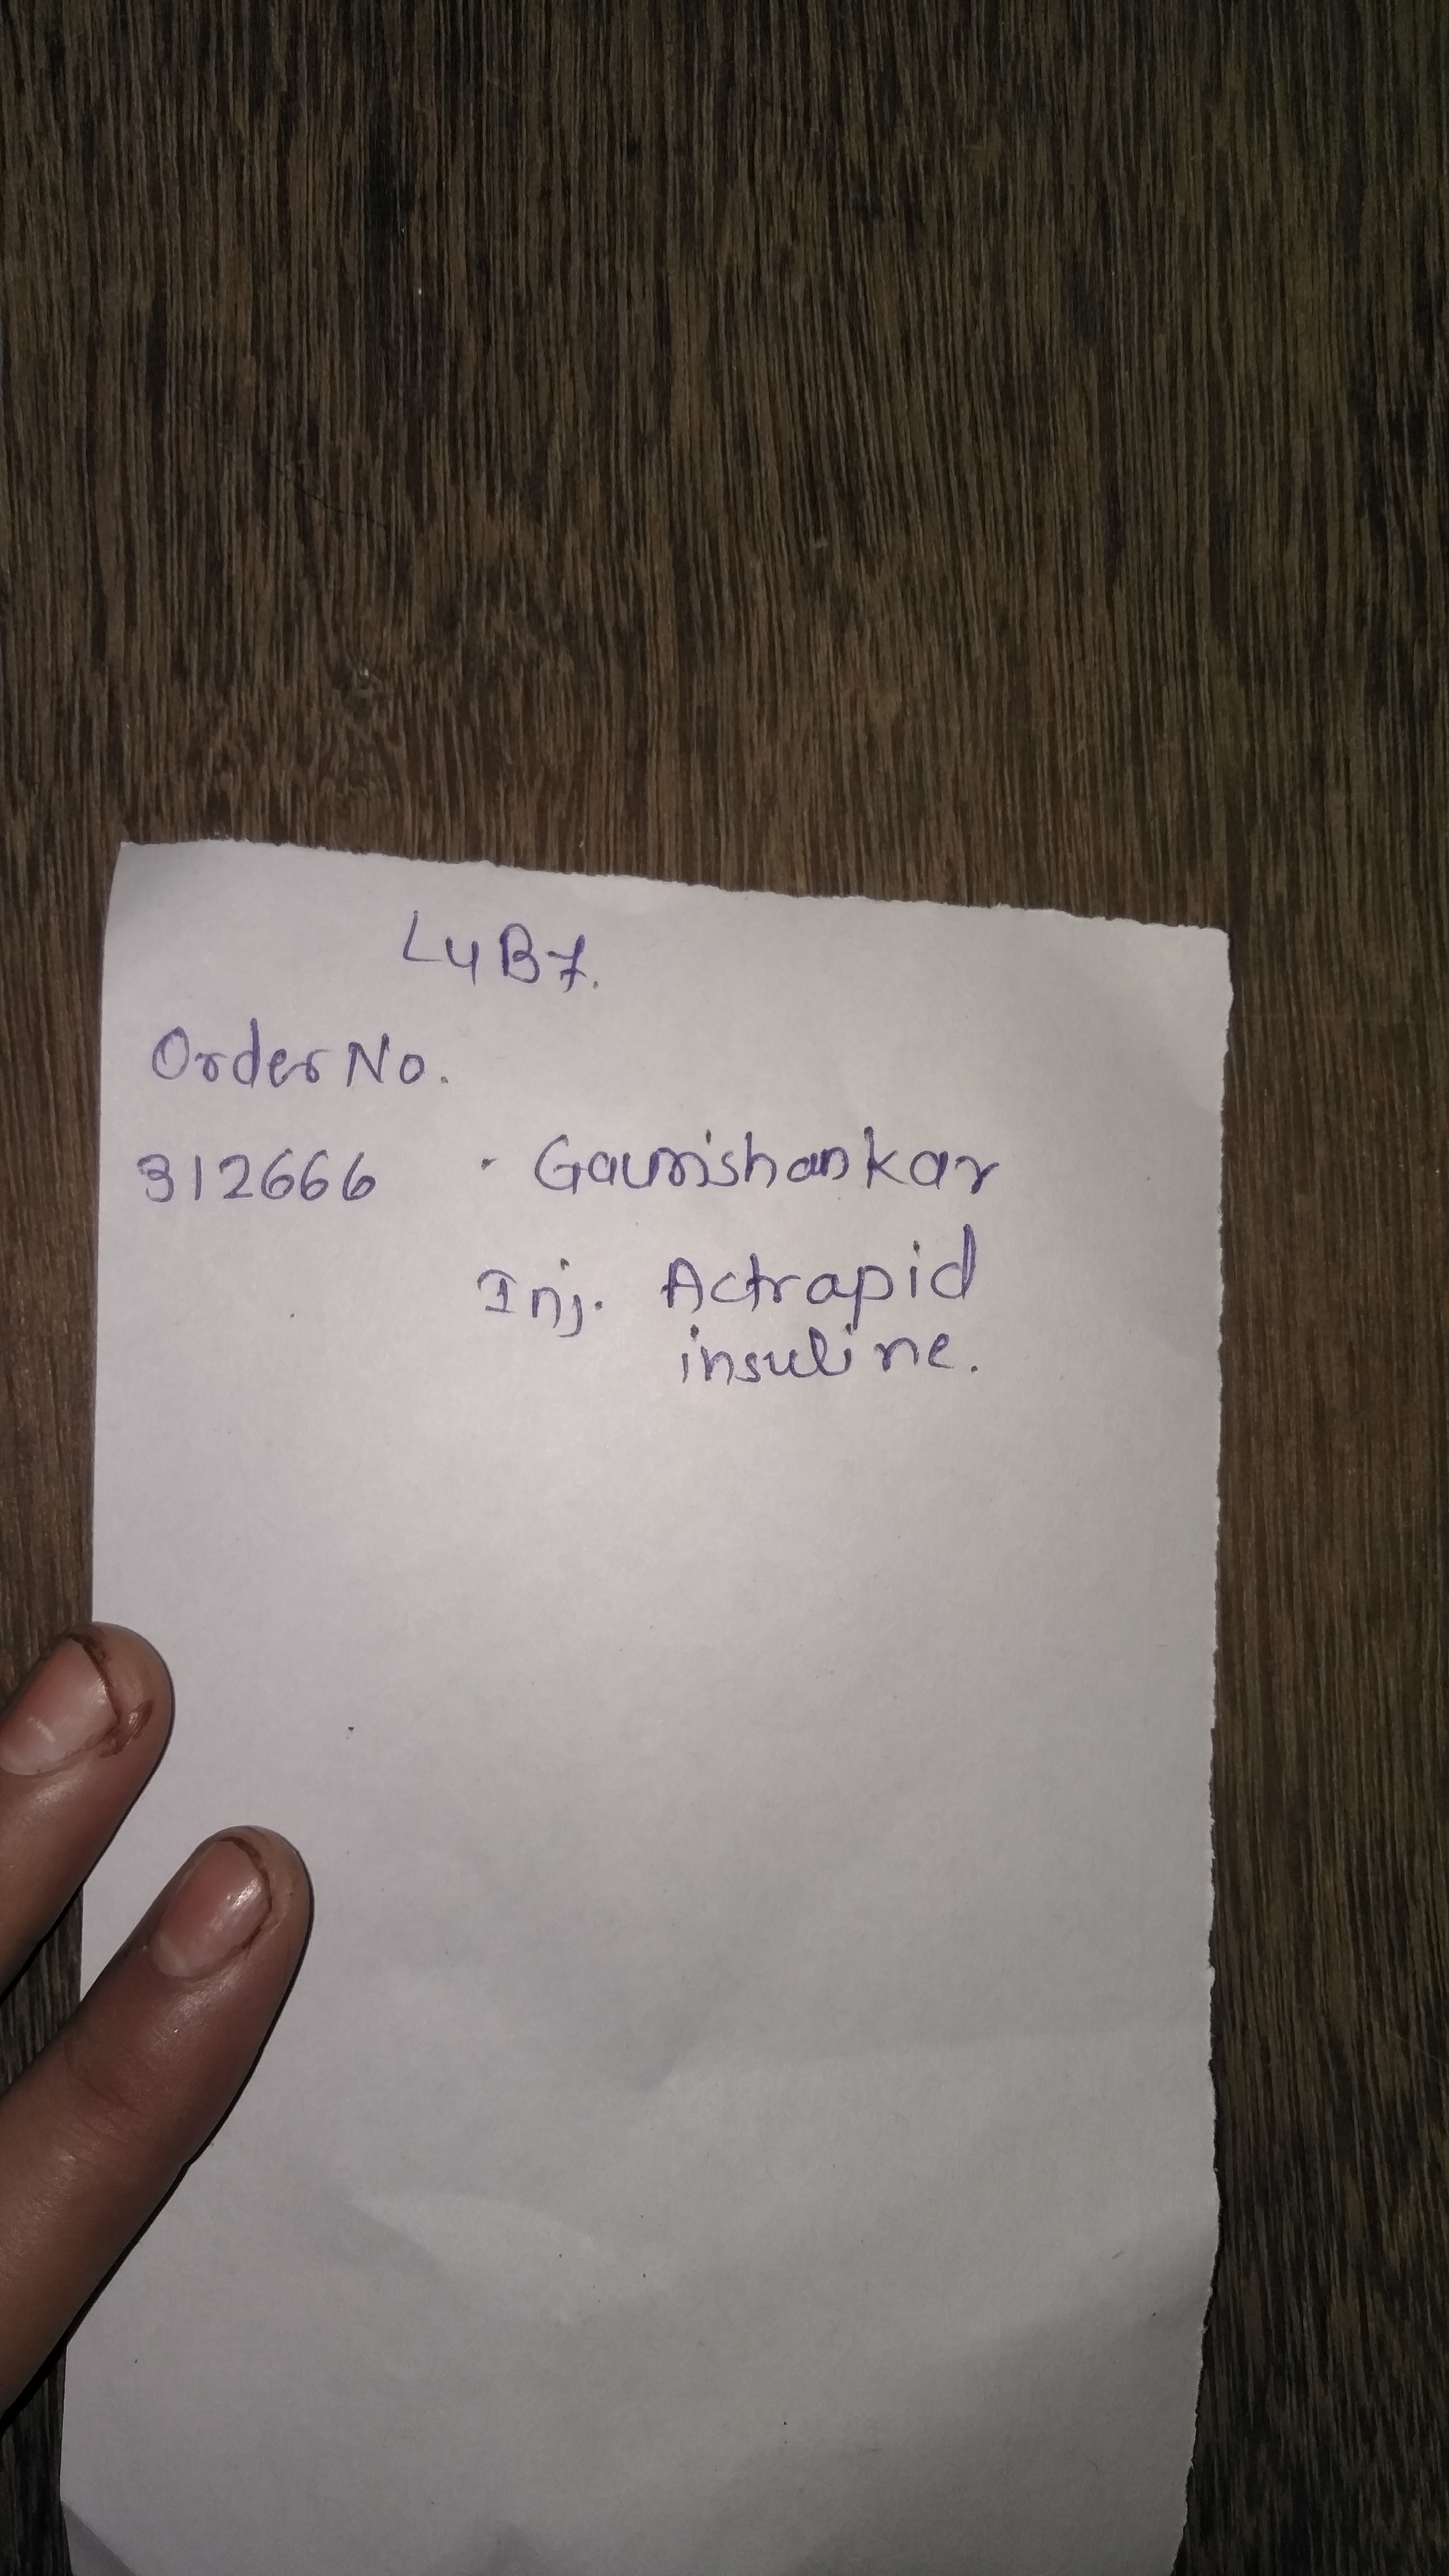 L4B7.
Order No.
312666 · Gaurishankar
Inj. Actrapid
insuline.